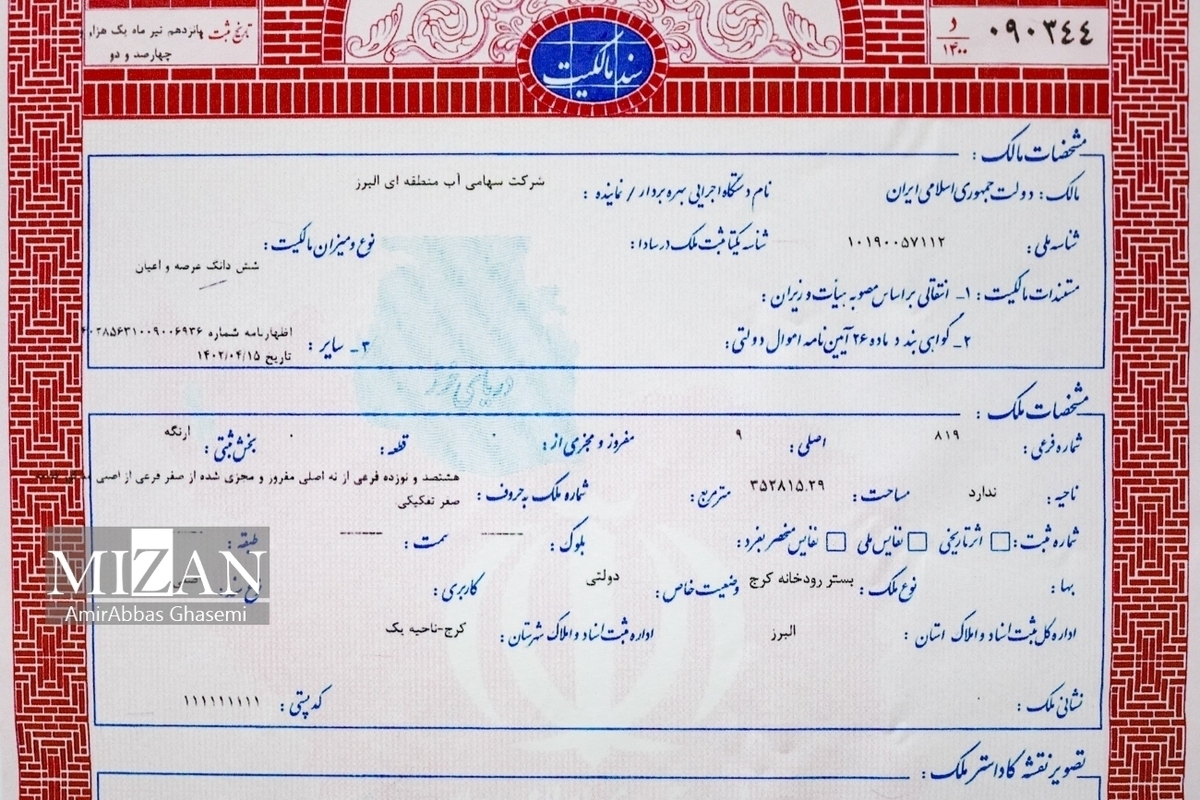 تاریخ ثبت پانزدهم تیر ماه یک هزار
چهارصد و دو
سند مالکیت
د
۱۴۰۰
۰۹۰۳۴۴
مشخصات مالک :
مالک : دولت جمهوری اسلامی ایران نام دستگاه اجرایی بهره بردار / نماینده : شرکت سهامی آب منطقه ای البرز
شناسه ملی : ۱۰۱۹۰۰۵۷۱۱۲ شناسه یکتا ثبت ملک در سادا : نوع و میزان مالکیت :
شش دانگ عرصه و اعیان
مستندات مالکیت : ۱- انتقالی بر اساس مصوبه هیأت وزیران :
۲- گواهی بند د ماده ۲۶ آیین نامه اموال دولتی : ۳- سایر : اظهارنامه شماره
تاریخ ۱۴۰۲/۰۴/۱۵
مشخصات ملک :
شماره فرعی : ۸۱۹ اصلی : ۹ مفروز و مجزی از : ۰ قطعه : ۰ بخش ثبتی : ارنگه
ناحیه : ندارد مساحت : ۳۵۲۸۱۵.۲۹ مترمربع : شماره ملک به حروف : هشتصد و نوزده فرعی از نه اصلی مفروز و مجزی شده از صفر فرعی از اصلی
صفر تفکیکی
شماره ثبت : اثر تاریخی نفایس ملی نفایس منحصر بفرد : بلوک : ------ سمت : ------ طبقه :
بها : نوع ملک : بستر رودخانه کرج وضعیت خاص : دولتی کاربری :
اداره کل ثبت اسناد و املاک استان : البرز اداره ثبت اسناد و املاک شهرستان : کرج-ناحیه یک
نشانی ملک : کدپستی : ۱۱۱۱۱۱۱۱۱۱
تصویر نقشه کاداستر ملک :
MIZAN
AmirAbbas Ghasemi